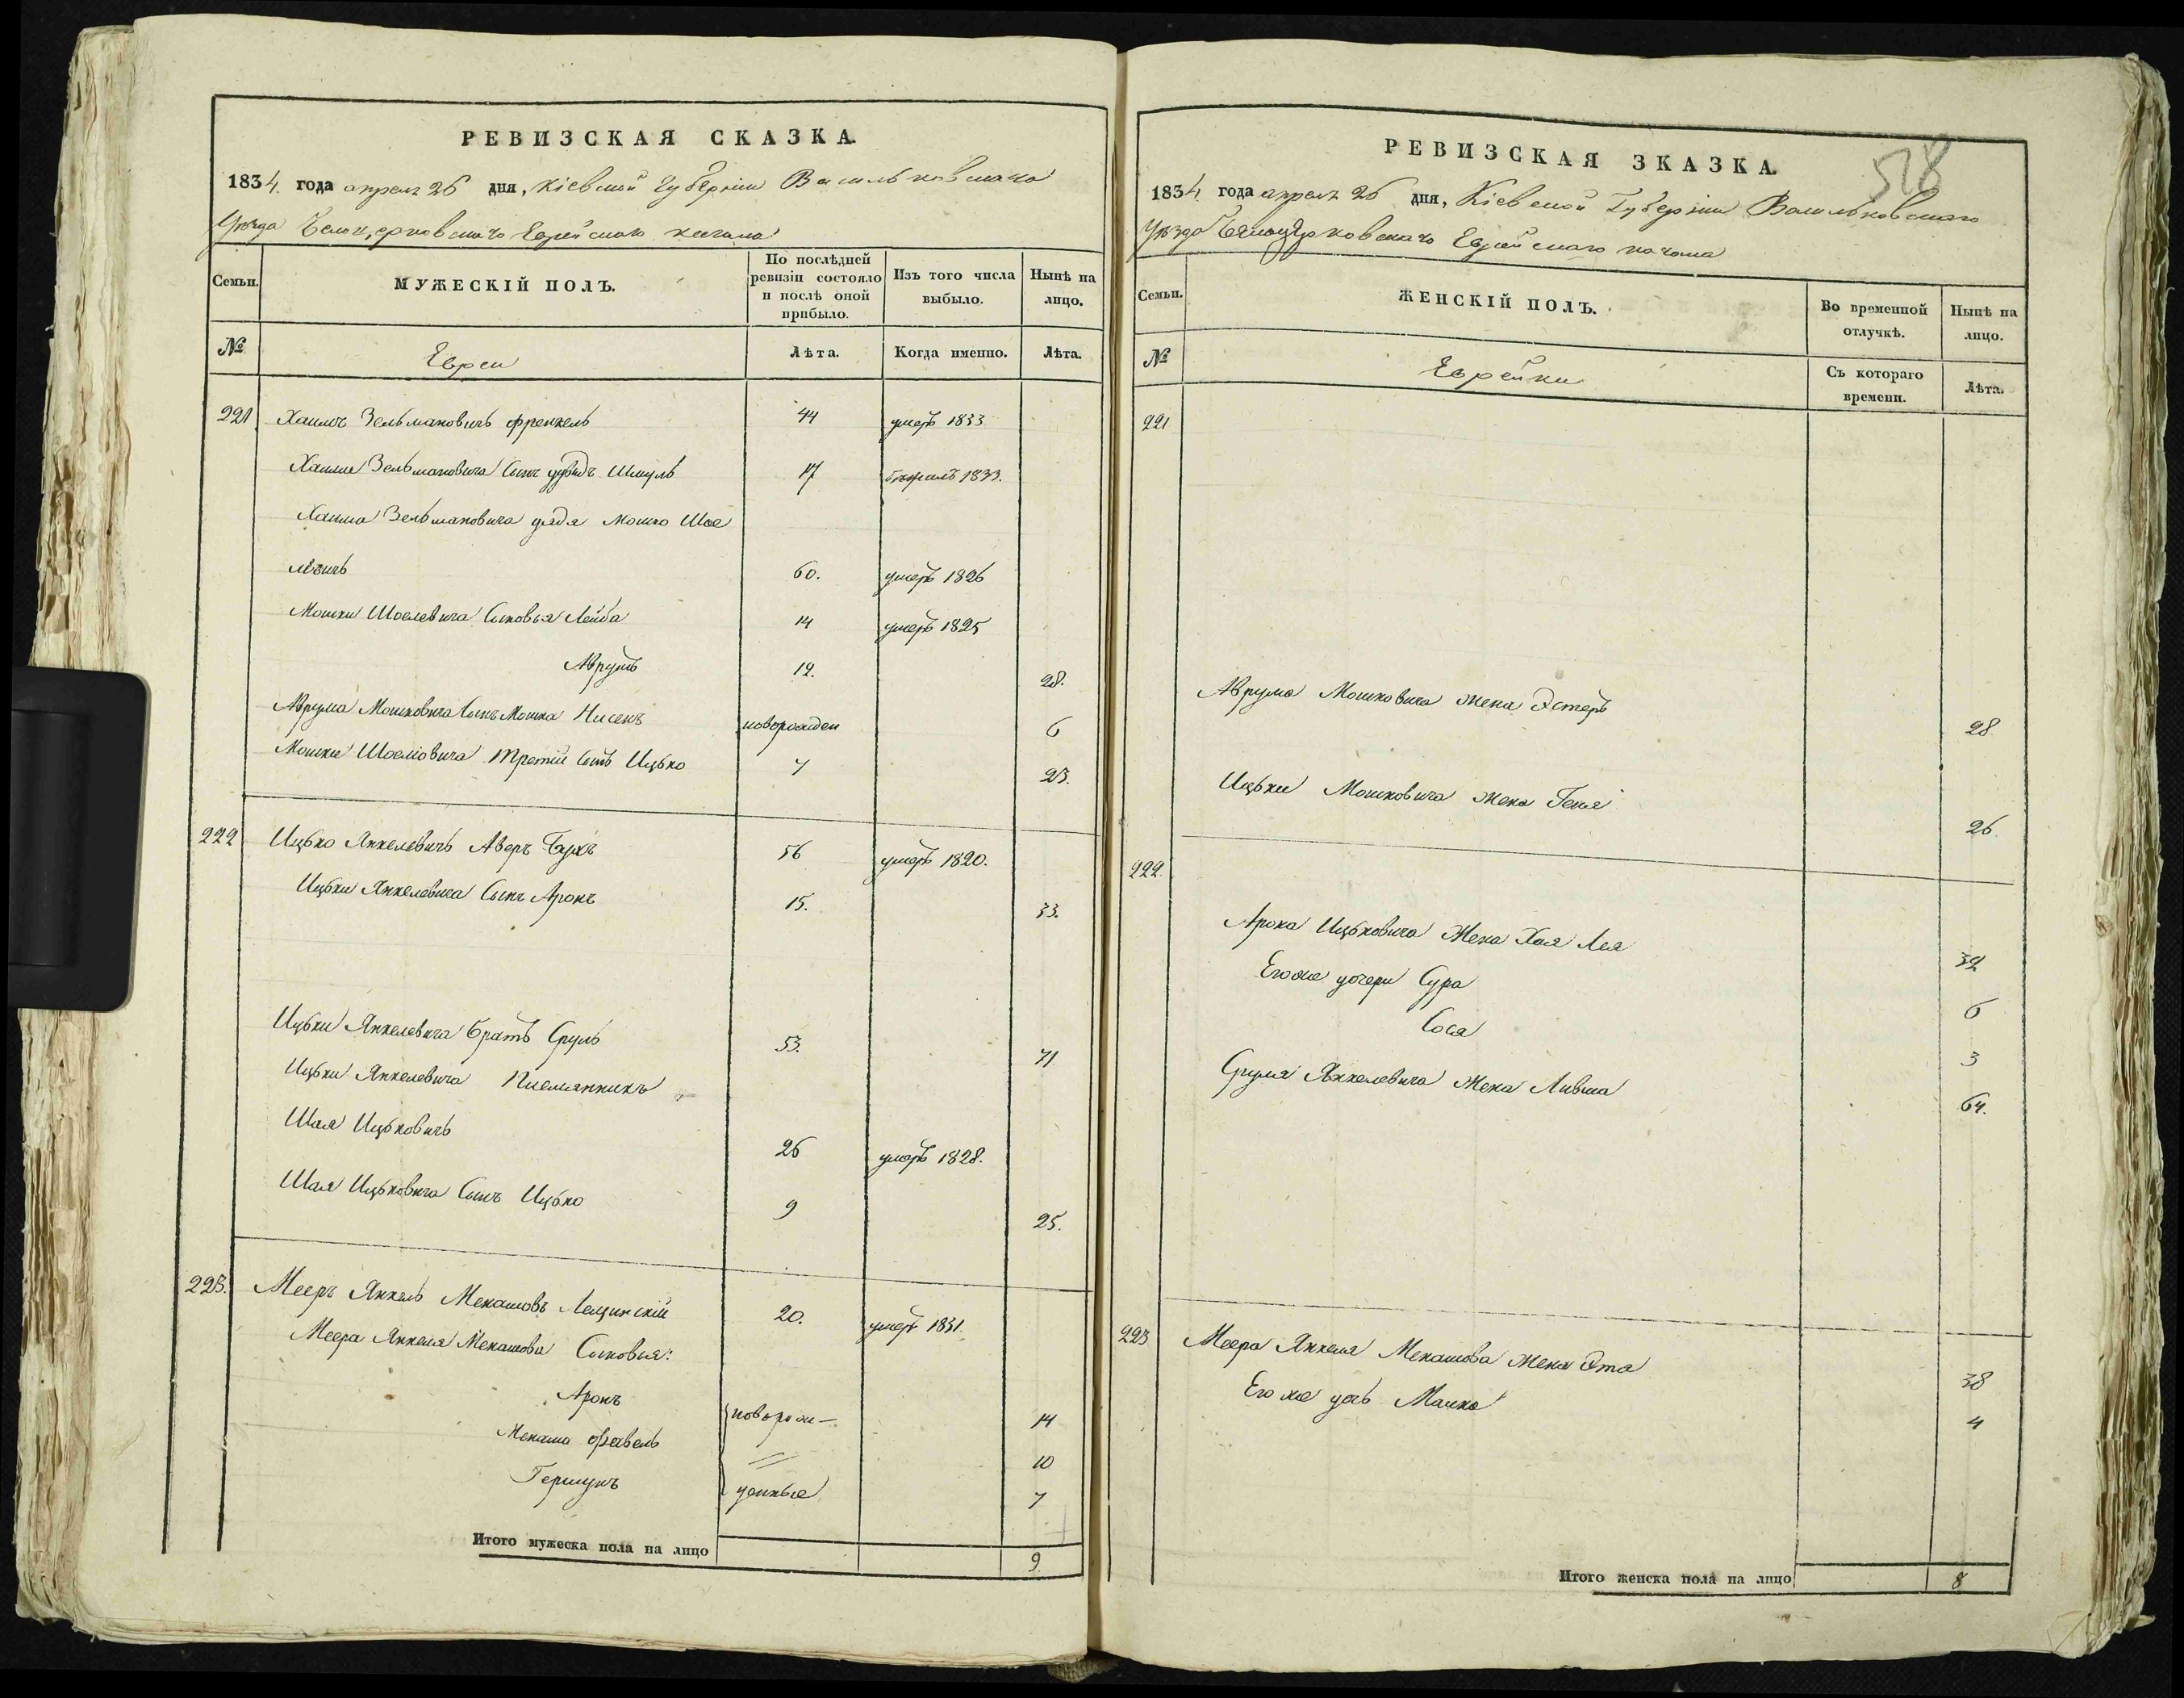 РЕВИЗСКАЯ СКАЗКА.
1834. года апреля 26 дня, Кіевской Губерніи Васильковскаго
Уѣзда Белоцерковскаго Еврейскаго кагала
Семьи.
МУЖЕСКІЙ ПОЛЪ.
По послѣдней ревизіи состояло и послѣ оной прибыло.
Изъ того числа выбыло.
Нынѣ на лицо.
№
Евреи
Лѣта.
Когда именно.
Лѣта.
221 Хаимъ Зельмановичь Френкель 44 умеръ 1833
Хаима Зельмановича Сынъ Шмуль 17 1833.
Хаима Зельмановича дядя Мошко Шое
левичь 60. умеръ 1826
Мошки Шоелевича Сыновья Лейба 14 умеръ 1825
Аврумъ 12. 28.
Аврума Мошковича Сынъ Мошка Нисенъ новорожден 6
Мошки Шоелевича третій Сынъ Ицько 7 23.
222 Ицько Янкелевичь Аверъ Бухъ 56 умеръ 1820.
Ицьки Янкелевича Сынъ Аронъ 15. 33.
Ицьки Янкелевича братъ Сруль 53. 71
Ицьки Янкелевича Племянникъ
Шая Ицьковичь 26 умеръ 1828.
Шая Ицьковича Сынъ Ицько 9 25.
223. Мееръ Янкель Менашовъ Лещинскій 20. умеръ 1831.
Меера Янкеля Менашова Сыновья:
Аронъ новорож— 14
Менаша Фавель 10
Гершунъ денные 7
Итого мужеска пола на лицо 9.
РЕВИЗСКАЯ ЗКАЗКА.
528
1834. года апреля 26 дня, Кіевской Губерніи Васильковскаго
Уѣзда Бѣлоцерковскаго Еврейскаго кагала
Семьи.
ЖЕНСКІЙ ПОЛЪ.
Во временной отлучкѣ.
Нынѣ на лицо.
№
Еврейки
Съ котораго времени.
Лѣта.
221
Аврума Мошковича жена Эстеръ 28.
Ицьки Мошковича жена Геня 26.
222.
Арона Ицьковича Жена Хая Лея 32
Егоже дочери Сура 6
Сося 3
Сруля Янкелевича Жена Ливша 64.
223 Меера Янкеля Менашова жена Эта 38
Его же дочь Малка 4
Итого женска пола на лицо 8